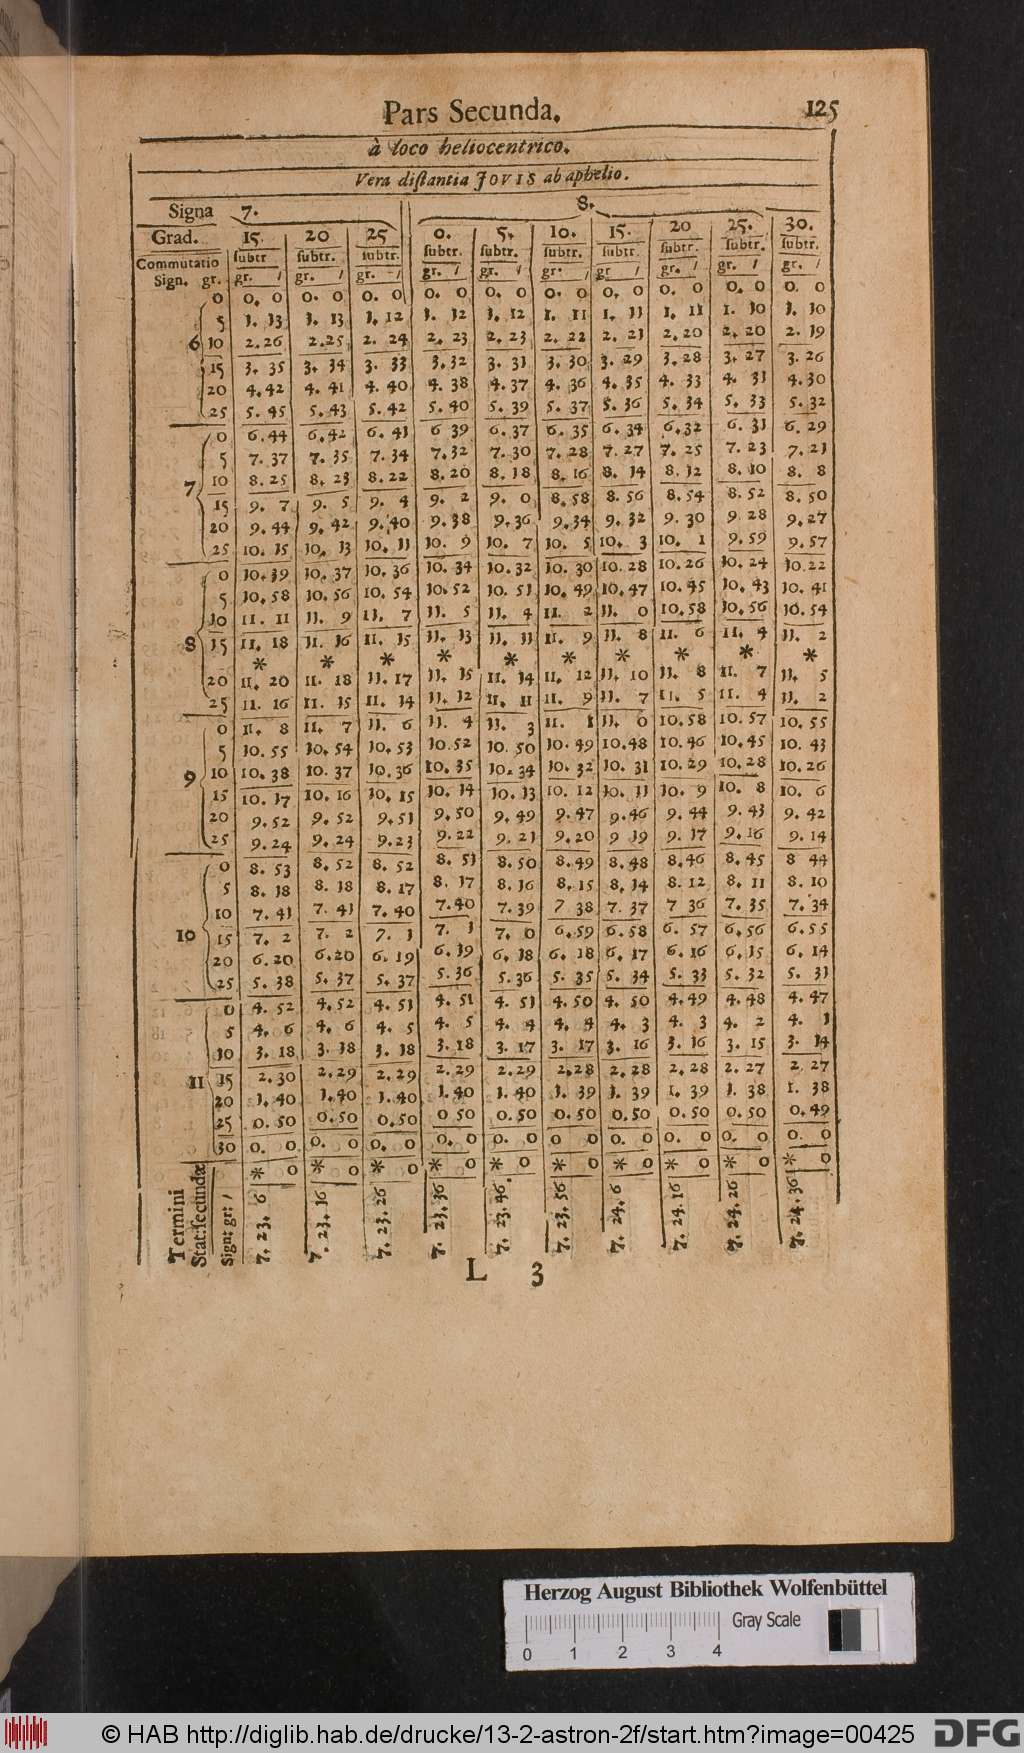 Pars Secunda. 125
à loco heliocentrico.
Vera distantia JOVIS ab aphelio.
Signa 7. 8.
Grad. 15. 20 25 0. 5. 10. 15. 20 25. 30.
Commutatio subtr subtr. subtr. subtr. subtr. subtr. subtr. subtr. subtr. subtr.
Sign. gr. gr. / gr. / gr. / gr. / gr. / gr. / gr / gr. / gr. / gr. /
0 0. 0 0. 0 0. 0 0. 0 0. 0 0. 0 0. 0 0. 0 0. 0 0. 0
5 1. 13 1. 13 1. 12 1. 12 1. 12 1. 11 1. 11 1. 11 1. 10 1. 10
6 10 2.26 2.25 2. 24 2. 23 2. 23 2. 22 2. 21 2. 20 2. 20 2. 19
15 3. 35 3. 34 3. 33 3.32 3. 31 3. 30 3. 29 3.28 3. 27 3. 26
20 4.42 4. 41 4. 40 4. 38 4.37 4. 36 4. 35 4. 33 4. 31 4.30
25 5. 45 5.43 5. 42 5.40 5. 39 5. 37 5. 36 5. 34 5. 33 5.32
0 6.44 6.42 6. 41 6 39 6.37 6. 35 6. 34 6.32 6. 31 6. 29
5 7. 37 7. 35 7. 34 7.32 7. 30 7. 28 7. 27 7. 25 7. 23 7. 21
7 10 8. 25 8. 23 8.22 8. 20 8. 18 8. 16 8. 14 8. 12 8. 10 8. 8
15 9. 7 9. 5 9. 4 9. 2 9. 0 8.58 8. 56 8.54 8. 52 8. 50
20 9.44 9. 42 9.40 9.38 9.36 9.34 9. 32 9. 30 9 28 9.27
25 10. 15 10. 13 10. 11 10. 9 10. 7 10. 5 10. 3 10. 1 9. 59 9.57
0 10.39 10. 37 10. 36 10. 34 10.32 10. 30 10. 28 10.26 10. 24 10.22
5 10.58 10. 56 10. 54 10.52 10. 51 10.49 10.47 10.45 10.43 10.41
10 11. 11 11. 9 11. 7 11. 5 11. 4 11. 2 11. 0 10.58 10.56 10.54
8 15 11. 18 11. 16 11. 15 11. 13 11. 11 11. 9 11. 8 11. 6 11. 4 11. 2
* * * * * * * * * *
20 11. 20 11. 18 11.17 11. 15 11. 14 11. 12 11. 10 11. 8 11. 7 11. 5
25 11. 16 11. 15 11. 14 11. 12 11. 11 11. 9 11. 7 11. 5 11. 4 11. 2
0 11. 8 11. 7 11. 6 11. 4 11. 3 11. 1 11. 0 10.58 10.57 10.55
5 10.55 10.54 10.53 10.52 10. 50 10.49 10.48 10.46 10.45 10. 43
9 10 10.38 10. 37 10.36 10.35 10. 34 10. 32 10. 31 10.29 10.28 10.26
15 10. 17 10. 16 10. 15 10. 14 10. 13 10. 12 10. 11 10. 9 10. 8 10. 6
20 9.52 9. 52 9.51 9.50 9.49 9.47 9.46 9. 44 9. 43 9. 42
25 9.24 9.24 9.23 9.22 9. 21 9.20 9 19 9. 17 9. 16 9. 14
0 8. 53 8. 52 8. 52 8. 51 8.50 8.49 8.48 8.46 8.45 8 44
5 8. 18 8. 18 8.17 8. 17 8.16 8.15 8.14 8.12 8. 11 8.10
10 7. 41 7. 41 7. 40 7.40 7.39 7 38 7. 37 7 36 7. 35 7.34
10 15 7. 2 7. 2 7. 1 7. 1 7. 0 6.59 6.58 6. 57 6.56 6.55
20 6.20 6.20 6. 19 6. 19 6. 18 6. 18 6. 17 6.16 6.15 6. 14
25 5. 38 5. 37 5. 37 5.36 5.36 5. 35 5. 34 5. 33 5. 32 5. 31
0 4. 52 4.52 4. 51 4. 51 4. 51 4.50 4. 50 4.49 4.48 4.47
5 4. 6 4. 6 4. 5 4. 5 4. 4 4. 4 4. 3 4. 3 4. 2 4. 1
10 3. 18 3. 18 3. 18 3.18 3. 17 3. 17 3. 16 3. 16 3. 15 3. 14
11 15 2. 30 2.29 2.29 2.29 2.29 2.28 2.28 2.28 2.27 2 27
20 1.40 1.40 1.40 1.40 1.40 1. 39 1. 39 1. 39 1. 38 1. 38
25 0. 50 0.50 0.50 0 50 0.50 0.50 0.50 0.50 0.50 0.49
30 0. 0 0. 0 0. 0 0. 0 0. 0 0 0 0. 0 0. 0 0. 0 0. 0
* 0 * 0 * 0 * 0 * 0 * 0 * 0 * 0 * 0 * 0
Termini
Stat: secundæ
Sign: gr: / 7. 23. 6 7. 23. 16 7. 23. 26 7. 23. 36 7. 23. 46. 7. 23. 56 7. 24. 6 7. 24. 16 7. 24. 26 7. 24. 36
L 3
Herzog August Bibliothek Wolfenbüttel
Gray Scale
0 1 2 3 4
© HAB http://diglib.hab.de/drucke/13-2-astron-2f/start.htm?image=00425 DFG